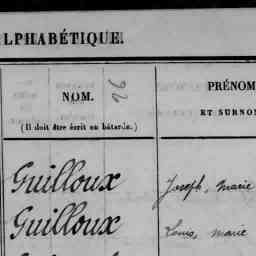 ALPHABÉTIQUE.
NOM. 92 PRÉNOM
ET SURNO
(Il doit être écrit en bâtarde.)
Guilloux Joseph, marie
Guilloux Louis, marie